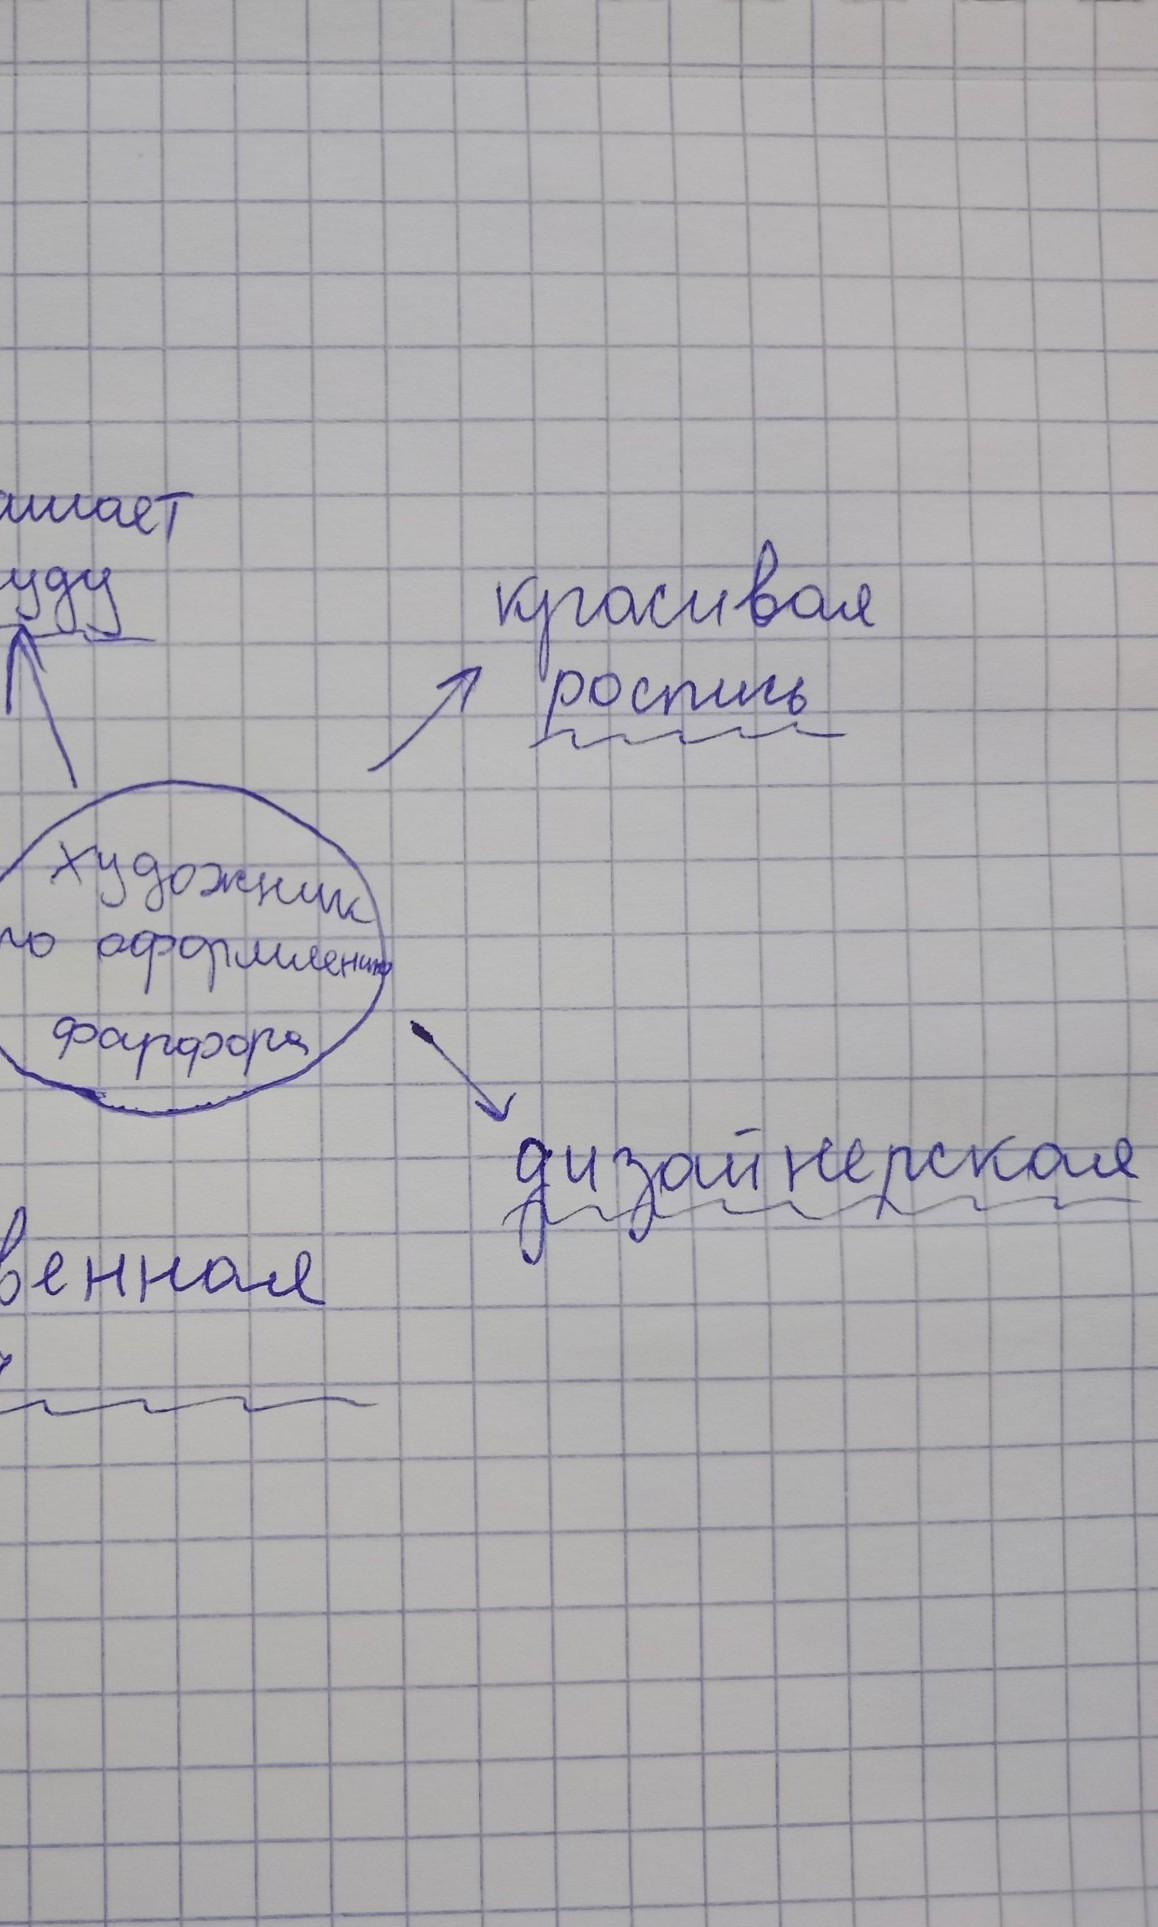 ашает
уду
красивая
роспись
художник
по оформлению
фарфора
дизайнерская
венная